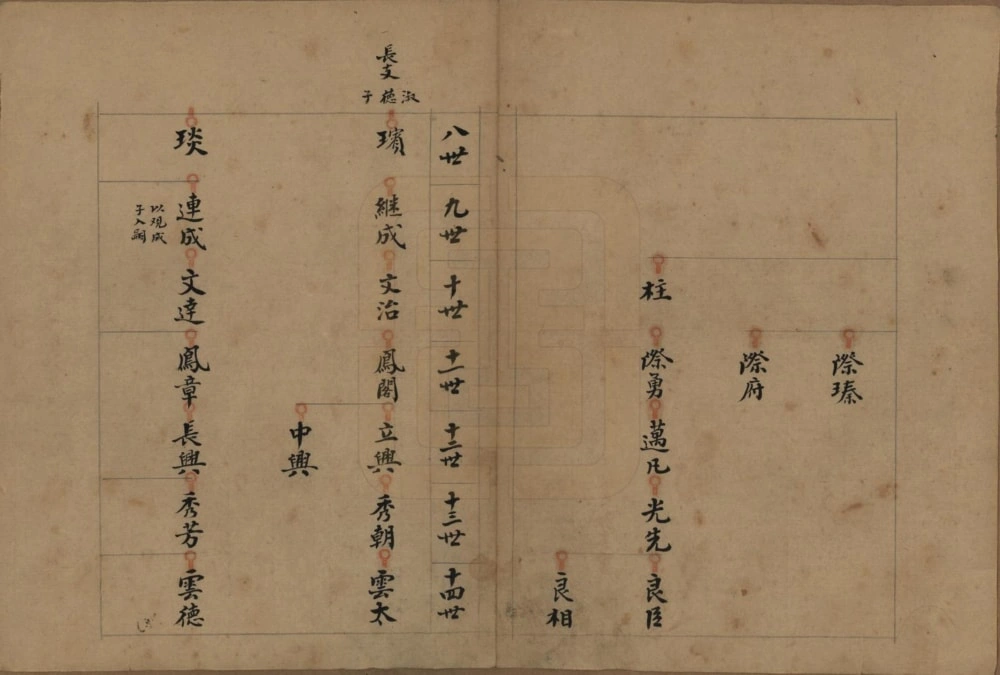 際瑧
際府
柱
際勇
邁凡
光先
良臣
良相
八世
九世
十世
十一世
十二世
十三世
十四世
長支
淑德子
璸
継成
文治
鳳閣
立興
秀朝
雲太
中興
琰
連成
以观成
子入嗣
文達
鳳章
長興
秀芳
雲德